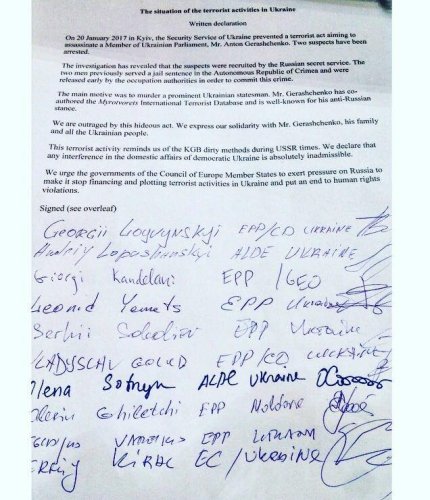 The situation of the terrorist activities in Ukraine
Written declaration
On 20 January 2017 in Kyiv, the Security Service of Ukraine prevented a terrorist act aiming to
assassinate a Member of Ukrainian Parliament, Mr. Anton Gerashchenko. Two suspects have been
arrested.
The investigation has revealed that the suspects were recruited by the Russian secret service. The
two men previously served a jail sentence in the Autonomous Republic of Crimea and were
released early by the occupation authorities in order to commit this crime.
The main motive was to murder a prominent Ukrainian statesman. Mr. Gerashchenko has co-
authored the Myrotvorets International Terrorist Database and is well-known for his anti-Russian
stance.
We are outraged by this hideous act. We express our solidarity with Mr. Gerashchenko, his family
and all the Ukrainian people.
This terrorist activity reminds us of the KGB dirty methods during USSR times. We declare that
any interference in the domestic affairs of democratic Ukraine is absolutely inadmissible.
We urge the governments of the Council of Europe Member States to exert pressure on Russia to
make it stop financing and plotting terrorist activities in Ukraine and put an end to human rights
violations.
Signed (see overleaf)
Georgii Logvynskyi EPP/CD UKRAINE
Andriy Lopushanskyi ALDE UKRAINE
Giorgi Kandelaki EPP /GEO
Leonid Yemets EPP Ukraine
Serhii Sobolev EPP Ukraine
EPP/CD UKRAINE
Olena Sotnyk ALDE Ukraine
Valeriu Ghiletchi EPP Moldova
EPP
KIRAL EC /UKRAINE